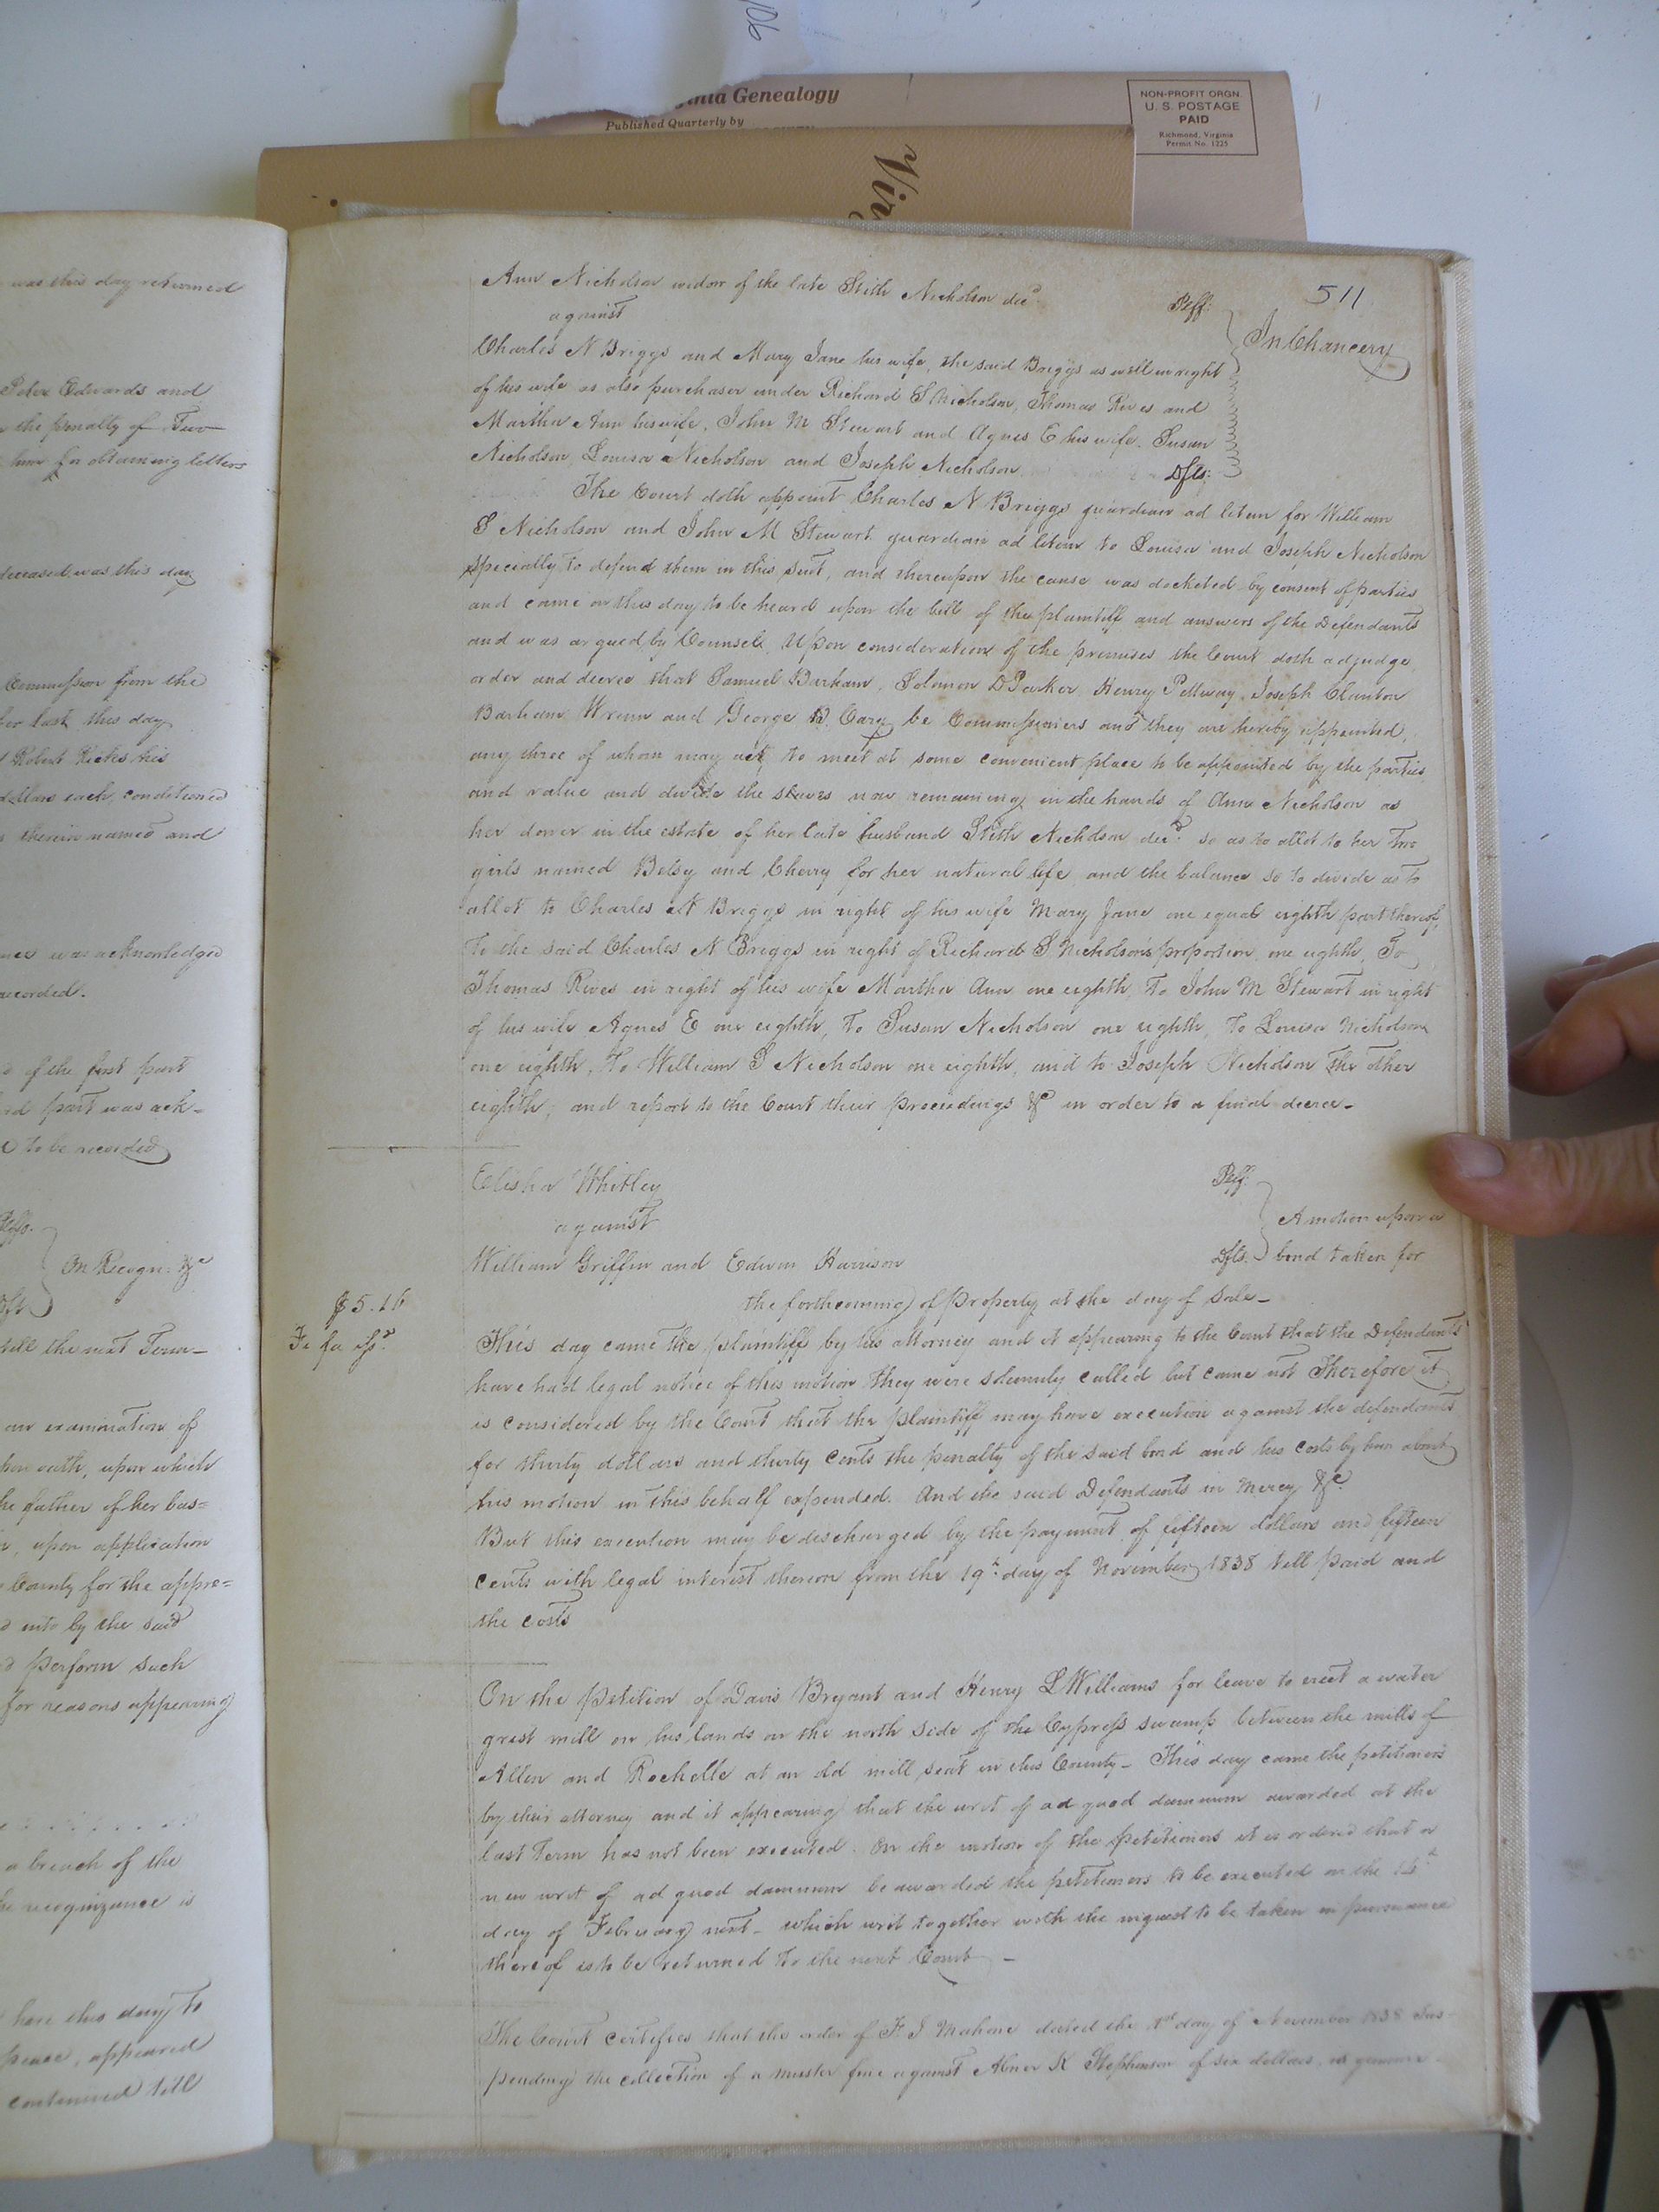 90
ginia Genealogy
Published Quarterly by
NON-PROFIT ORGN.
U. S. POSTAGE
PAID
Richmond, Virginia
Permit No. 1225
Vir
was this day returned
Edwards and
the penalty of Two
him for obtaining letters
deceased was this day
Commission from the
last this day
Robert Ricks his
dollars each, conditioned
therein named and
was acknowledged
recorded.
of the first part
part was ack-
to be recorded
On Recogn: &c
till the next Term-
an examination of
oath, upon which
he father of her bas=
upon application
County for the appre=
into by the said
perform such
for reasons appearing
a breach of the
recognizance is
here this day to
peace, appeared
continued till
511
Ann Nicholson widow of the late Stith Nicholson decd Plff:
against
In Chancery
Charles N Briggs and Mary Jane his wife, the said Briggs as well in right
of his wife as also purchaser under Richard S Nicholson, Thomas Rives and
Martha Ann his wife, John M Stewart and Agnes E his wife. Susan
Nicholson, Louisa Nicholson and Joseph Nicholson Dfts:
The Court doth appoint Charles N Briggs guardian ad litem for William
S Nicholson and John M Stewart guardian ad litem to Louisa and Joseph Nicholson
specially to defend them in this suit, and thereupon the cause was docketed by consent of parties
and came on this day to be heard upon the bill of the plaintiff and answers of the Defendants
and was argued by Counsel, Upon consideration of the premises the Court doth adjudge,
order and decree that Samuel Barham, Solomon D Parker, Henry Pettway, Joseph Clanton
Barham Wrenn and George Cary be Commissioners and they are hereby appointed,
any three of whom may act, to meet at some convenient place to be appointed by the parties
and value and divide the slaves now remaining in the hands of Ann Nicholson as
her dower in the estate of her late husband Stith Nicholson decd. so as to allot to her two
girls named Betsy and Cherry for her natural life, and the balance so to divide as to
allot to Charles N Briggs in right of his wife Mary Jane one equal eighth part thereof,
To the said Charles N Briggs in right of Richard S Nicholson's proportion one eighth, To
Thomas Rives in right of his wife Martha Ann one eighth, To John M Stewart in right
of his wife Agnes E one eighth, To Susan Nicholson one eighth, To Louisa Nicholson
one eighth, To William S Nicholson one eighth, and to Joseph Nicholson the other
eighth, and report to the Court their proceedings &c in order to a final decree-
Elisha Whitley Plff:
against
A motion upon a
William Griffin and Edwin Harrison Dfts. bond taken for
the forthcoming of property at the day of sale-
$5.16
Fi fa
This day came the plaintiff by his attorney and it appearing to the Court that the Defendants
have had legal notice of this motion they were solemnly called but came not Therefore it
is considered by the Court that the plaintiff may have execution against the defendants
for thirty dollars and thirty cents the penalty of the said bond and his costs by him about
his motion in this behalf expended. And the said Defendants in Mercy &c.
But this execution may be discharged by the payment of fifteen dollars and fifteen
cents with legal interest thereon from the 19th day of November 1838 till paid and
the costs
On the petition of Davis Bryant and Henry L Williams for leave to erect a water
grist mill on his lands on the north side of the Cypress swamp between the mills of
Allen and Rochelle at an old mill seat in this County- This day came the petitioners
by their attorney and it appearing that the writ of ad quod damnum awarded at the
last Term has not been executed. On the motion of the petitioners it is ordered that a
new writ of ad quod damnum be awarded the petitioners to be executed on the
day of February next- which writ together with the inquest to be taken in pursuance
thereof is to be returned to the next Court -
The Court certifies that the order of F J Mahone dated the 1st day of November 1838 sus-
pending the collection of a muster fine against Abner K Stephenson of six dollars, is genuine